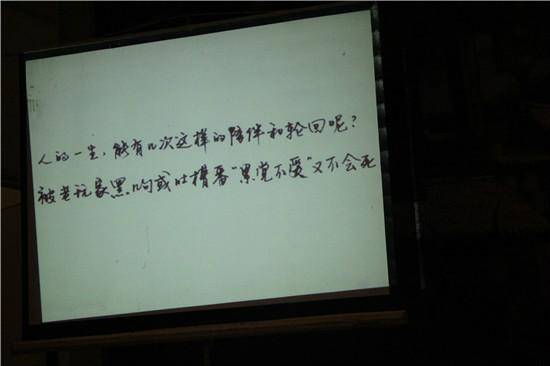 人的一生，能有几次这样的陪伴和轮回呢？
被老玩家黑几句或吐槽番“累觉不爱”又不会死